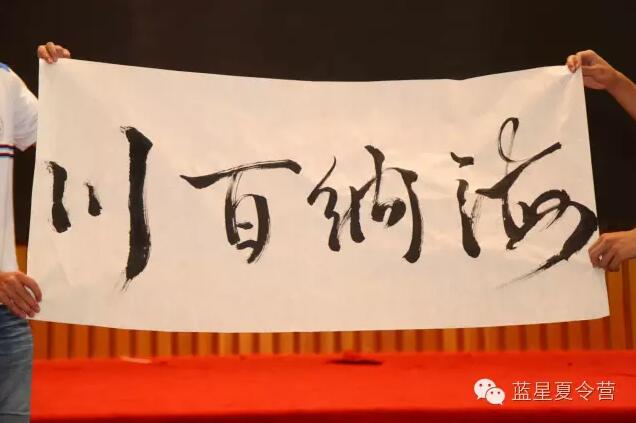 海纳百川
蓝星夏令营